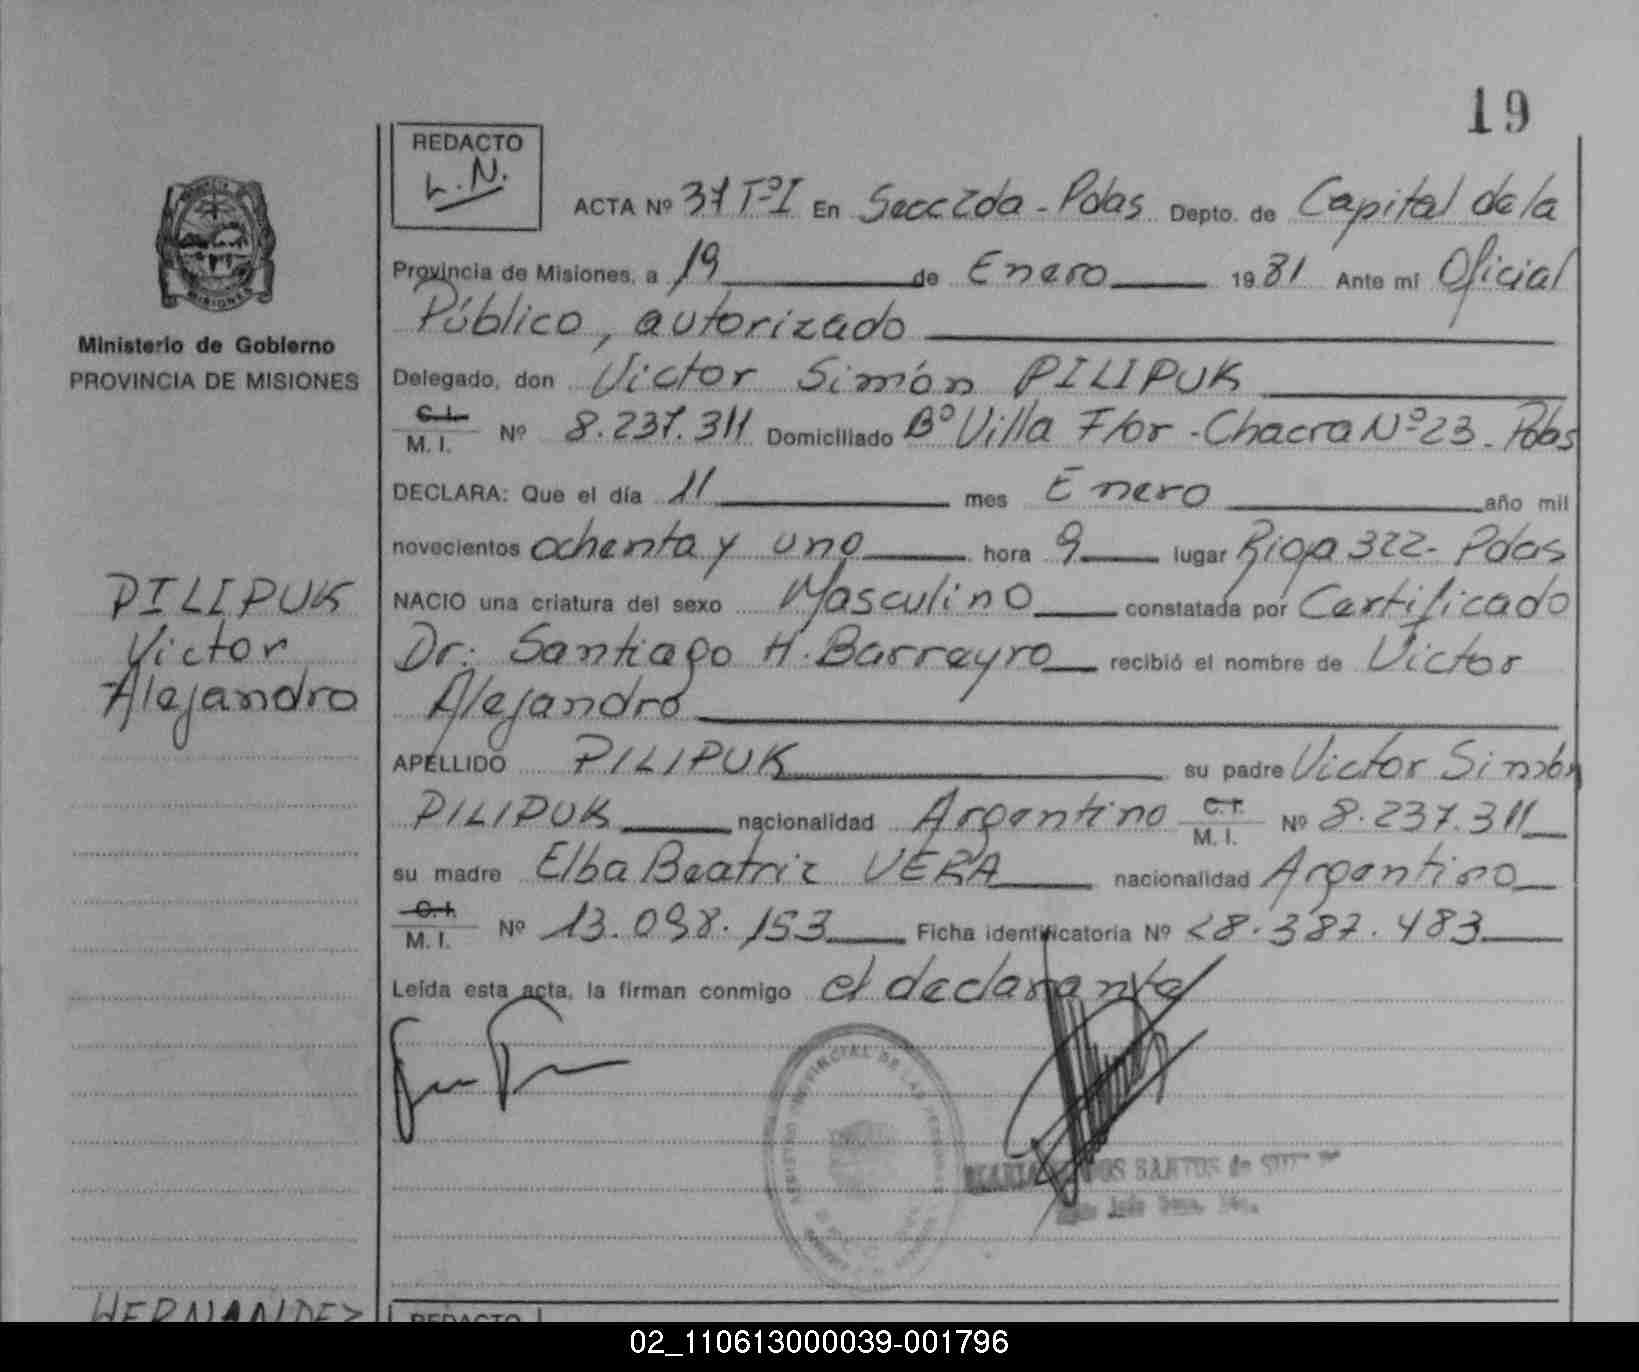 19
REDACTO
L.N.
ACTA Nº 37 TºI En Secc 2da - Pdas Depto. de Capital de la
Provincia de Misiones, a 19 de Enero 1981 Ante mi Oficial
Público, autorizado
Ministerio de Gobierno
PROVINCIA DE MISIONES
Delegado, don Victor Simón PILIPUK
C.I. M.I. Nº 8.237.311 Domiciliado Bº Villa Flor - Chacra Nº 23 - Pdas
DECLARA: Que el día 11 mes Enero año mil
novecientos ochenta y uno hora 9 lugar Rioja 322 - Pdas
PILIPUK
Victor
Alejandro
NACIO una criatura del sexo Masculino constatada por Certificado
Dr. Santiago H. Barreyro recibió el nombre de Victor
Alejandro
APELLIDO PILIPUK su padre Victor Simón
PILIPUK nacionalidad Argentino C.I. M.I. Nº 8.237.311
su madre Elba Beatriz VERA nacionalidad Argentino
C.I. M.I. Nº 13.098.153 Ficha identificatoria Nº 28.387.483
Leída esta acta, la firman conmigo el declarante
PROVINCIAL DE LAS PERSONAS
MARIA DOS SANTOS de
HERNANDEZ
REDACTO
02_110613000039-001796